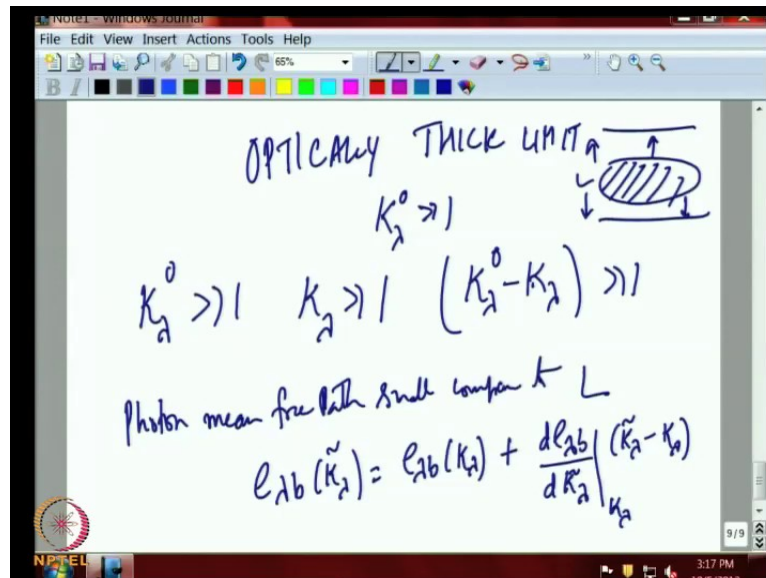 Note1 - Windows Journal
File Edit View Insert Actions Tools Help
65%
B I
OPTICALLY THICK LIMIT
L
K_λ^0 >> 1
K_λ^0 >> 1 K_λ >> 1 (K_λ^0 - K_λ) >> 1
Photon mean free Path small compar to L
e_λb (K̃_λ) = e_λb (K_λ) + de_λb / dK̃_λ |_K_λ (K̃_λ - K_λ)
9/9
NPTEL
3:17 PM